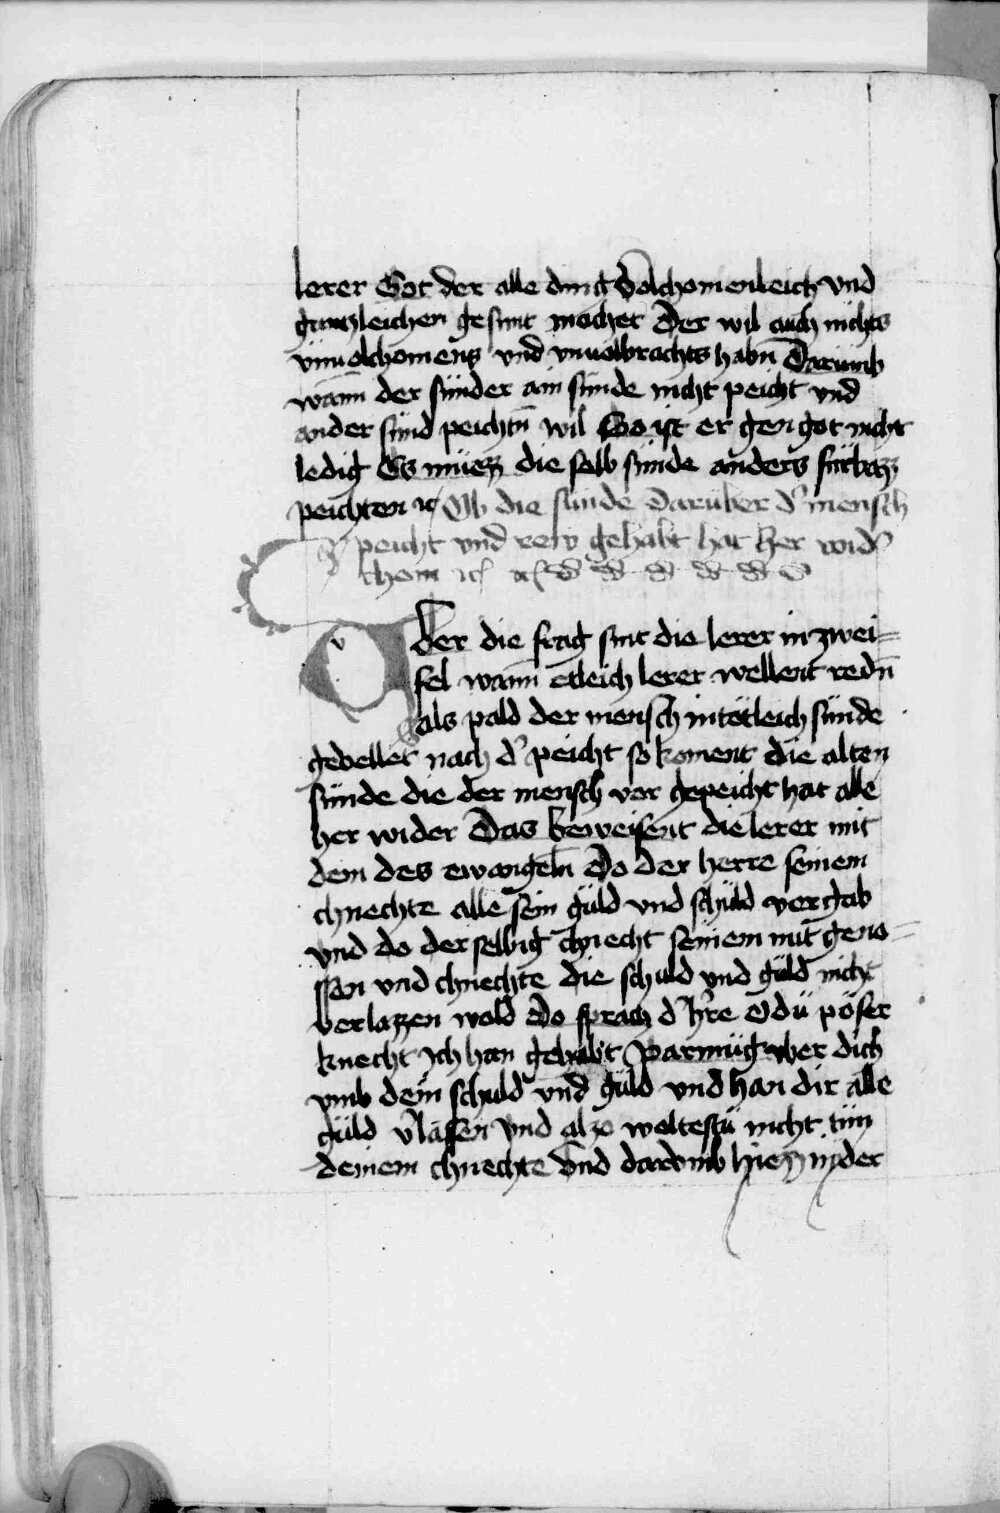 lerer Got der alle ding volchomenleich vnd
gantzleichen gesunt machet Der wil auch nichts
vnuolchomens vnd vnuolbrachts habn̄ Darumb
wann der sünder ain sünde nicht peicht vnd
ander sünd peichtn̄ wil So ist er gen got nicht
ledig Es müezz die selb sünde anders fürbazz
peichten ꝛc Ob die sünde darüber d' mensch
peicht vnd rew gehabt hat her wid'
chom ꝛc
Vber die frag sint die lerer in zwei=
fel wann etleich lerer wellent redn̄
als pald der mensch in tötleich sünde
gevellet nach d' peicht so koment die alten
sünde die der mensch vor gepeicht hat alle
her wider Das beweisent die lerer mit
dem des ewangelij Do der herre seinem
chnechte alle sein güld vnd schuld vergab
vnd do der selbig chnecht seinem mit geno=
ssen vnd chnechte die schuld vnd güld nicht
verlazzen wold Do sprach d' h're O dü pöser
knecht Ich han gehabt parmüg vber dich
vmb dein schuld vnd güld vnd han dir alle
güld v'lassen vnd alzo woltestu nicht tün
deinem chnechte Vnd darvmb hiezz in der